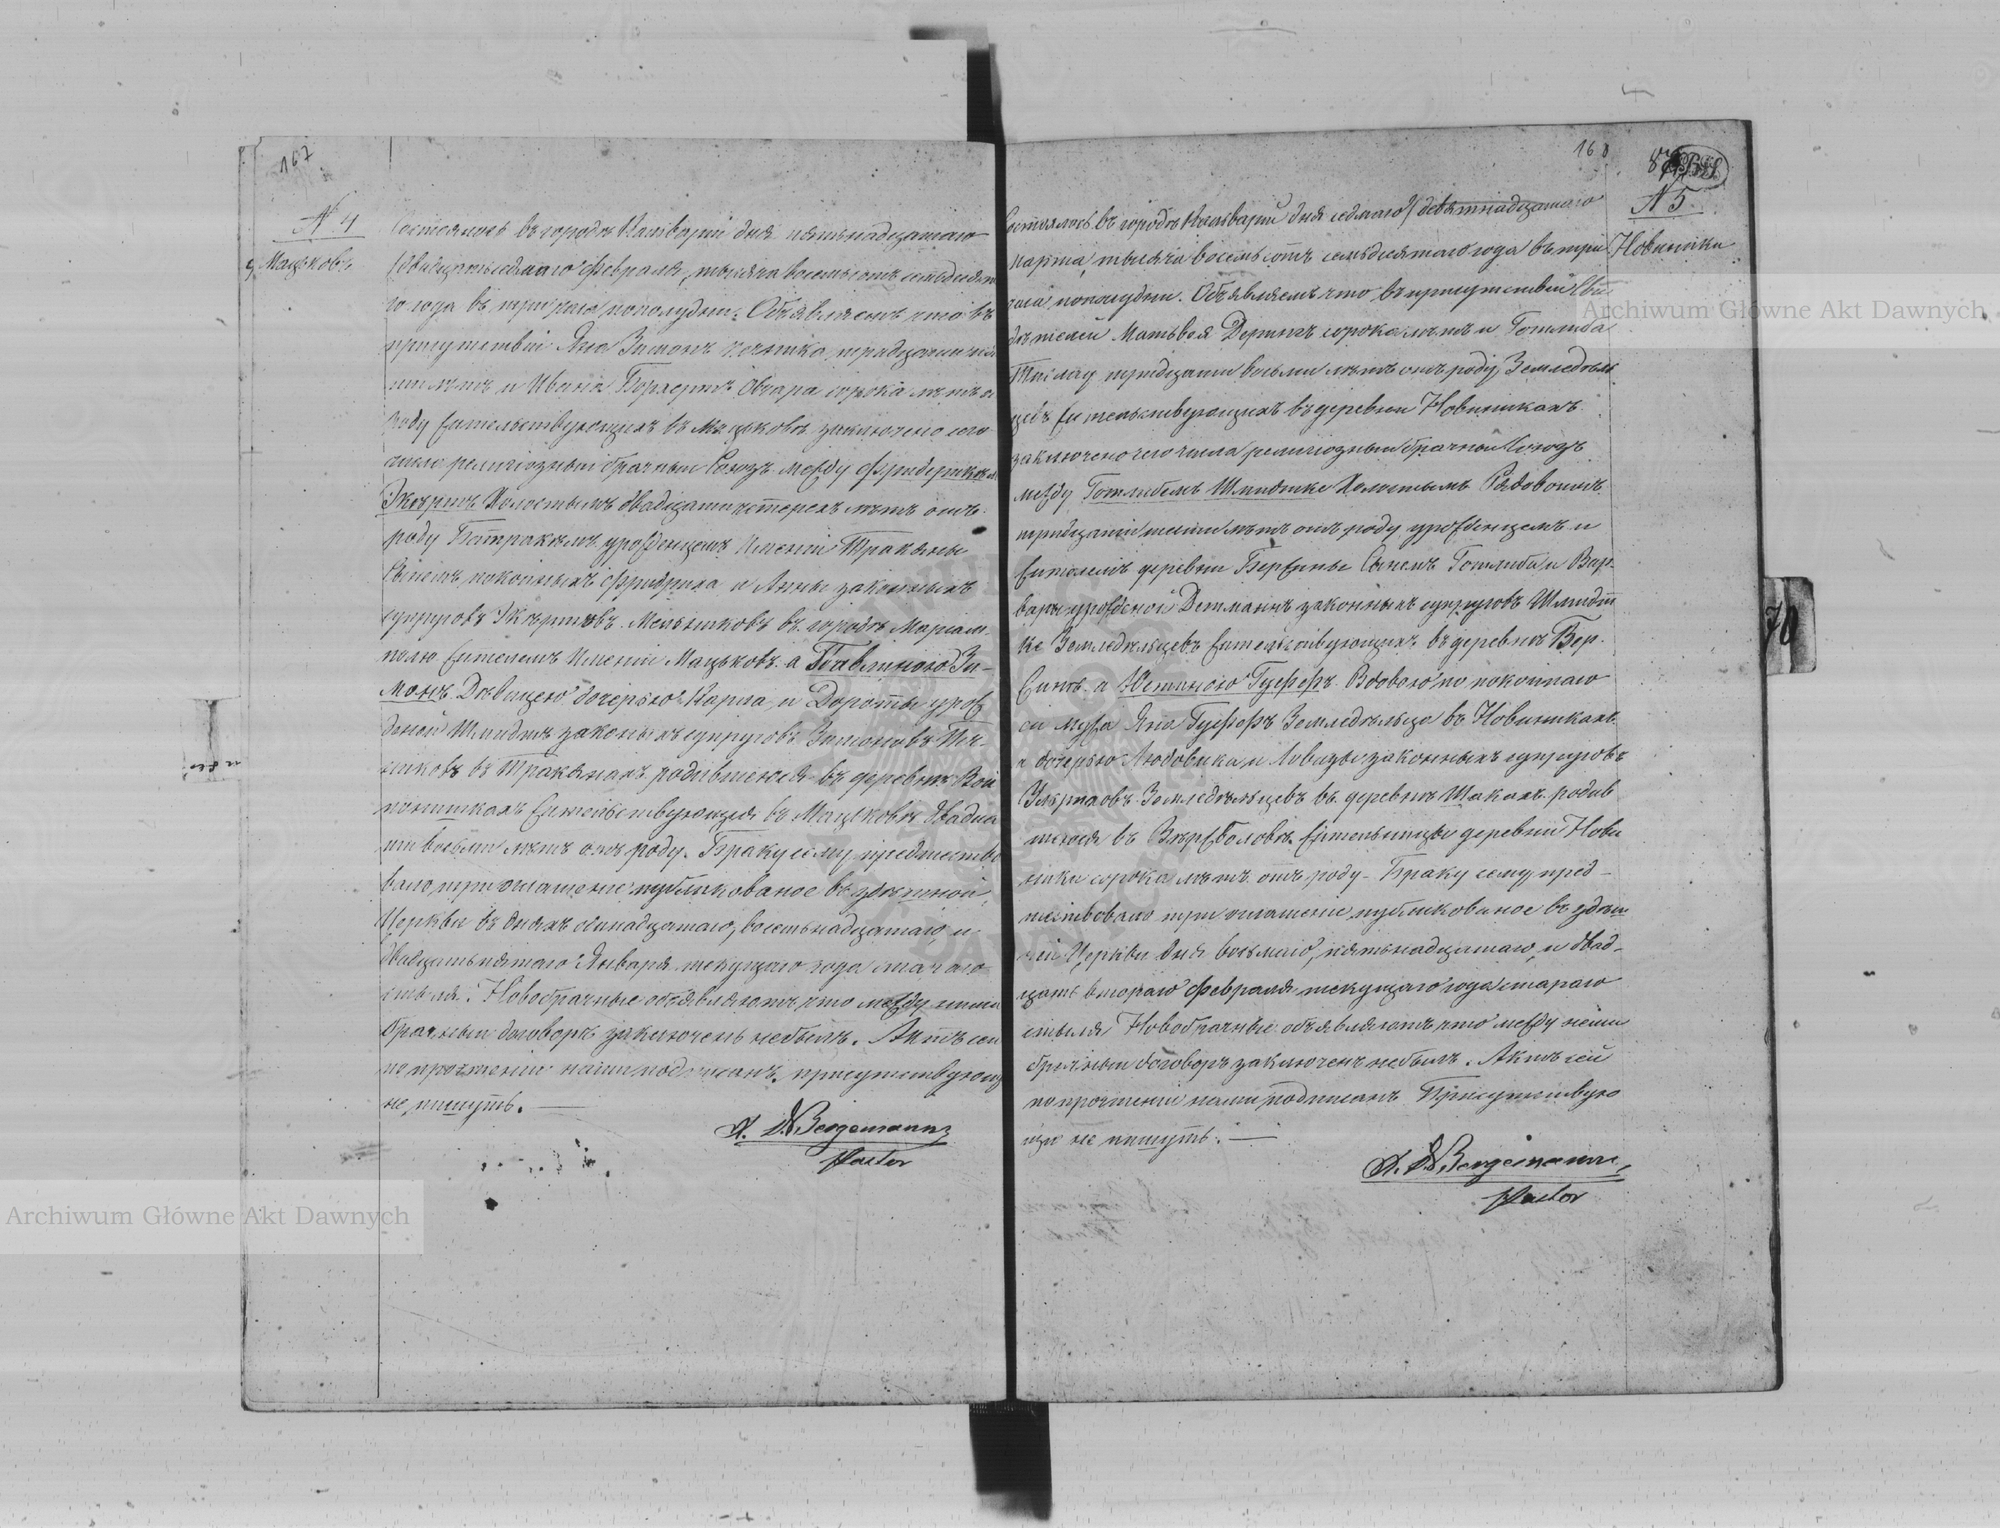 167
№ 4
Мацьковъ
Состоялось въ городѣ Калваріи дня пятьнадцатаго
(двадцатьседмаго) Февраля, тысяча восемьсотъ семьдесят
го года въ три часа пополудни. Объявляемъ что въ
присутствіи Яна Зимонъ печника, тридцати
лѣтъ и Ивана Овчара сорока лѣтъ отъ
роду жительствующихъ въ Мацьковѣ заключено сего
числа религіозный брачный Союзъ между Фридерикомъ
Экертъ Холостымъ двадцати четырехъ лѣтъ отъ
роду Батракомъ, урожденцемъ Имѣнія Тракѣны
Сыномъ покойныхъ Фридриха и Анны законныхъ
супруговъ Экертовъ Мельниковъ въ городѣ Маріам-
полю жителемъ Имѣнія Мацьковъ. а Павлиною Зи-
монъ Дѣвицею дочерью Карла и Дороты урож
деной Шмидтъ законныхъ супруговъ Зимоновъ Пѣч-
никовъ въ Тракѣнахъ родившеюся въ деревнѣ Вой
понишкахъ жительствующая въ Мацьковѣ двадца
ти восьми лѣтъ отъ роду. Браку сему предшество
вало три оглашеніе публикованое въ здѣшной
Церкви въ дняхъ одинадцатаго, восемьнадцатаго, и
двадцатьпятаго Января текущаго года стараго
стыля. Новобрачные объявляютъ, что между ними
брачный договоръ заключенъ небылъ. Актъ сей
по прочтеніи нами подписанъ, присутствующ
не пишутъ. —
A. W. Bergemann,
Pastor
168
№ 5.
Новиники
Состоялось въ городѣ Калваріи дня седмаго (девятнадцатаго
Марта, тысяча восемьсотъ семьдесятаго года въ три
часа пополудни. Объявляемъ что въ присутствіи Сви
дѣтелей Матьвея сорока лѣтъ и Готлиба
тридцати восьми лѣтъ отъ роду, Земледѣль
цевъ жительствующихъ въ деревни Новиникахъ
заключено сего числа религіозный брачной Союзъ
между Готлибемъ Шмидтке Холостымъ Рядовымъ
тридцати лѣтъ отъ роду урожденцемъ и
жителемъ деревни Бержины Сыномъ Готлиба и Вар-
вары урожденой Детманъ законныхъ супруговъ Шмидт
ке Земледѣльцевъ жительствующихъ въ деревнѣ Бер-
жинъ. а Юстиною Гуферъ Вдовою по покойнаго
ея мужа Яна Гуферъ Земледѣльца въ Новиникахъ.
а дочерью Людовика и Ловизы законныхъ супруговъ
Земледѣльцевъ въ деревнѣ Шакахъ. родив
шеюся въ Вержболовѣ. жительницы деревни Нови
ники сорока лѣтъ отъ роду - Браку сему пред-
шествовало три оглашеніе публикованое въ здѣш
ней Церкви дня восьмаго, пятьнадцатаго, и двад-
цать втораго Февраля текущаго года стараго
стыля Новобрачные объявляютъ что между ними
брачный договоръ заключенъ небылъ. Актъ сей
по прочтеніи нами подписанъ Присутствую
щіи не пишутъ. —
A. W. Bergemann,
Pastor
70
Archiwum Główne Akt Dawnych
Archiwum Główne Akt Dawnych